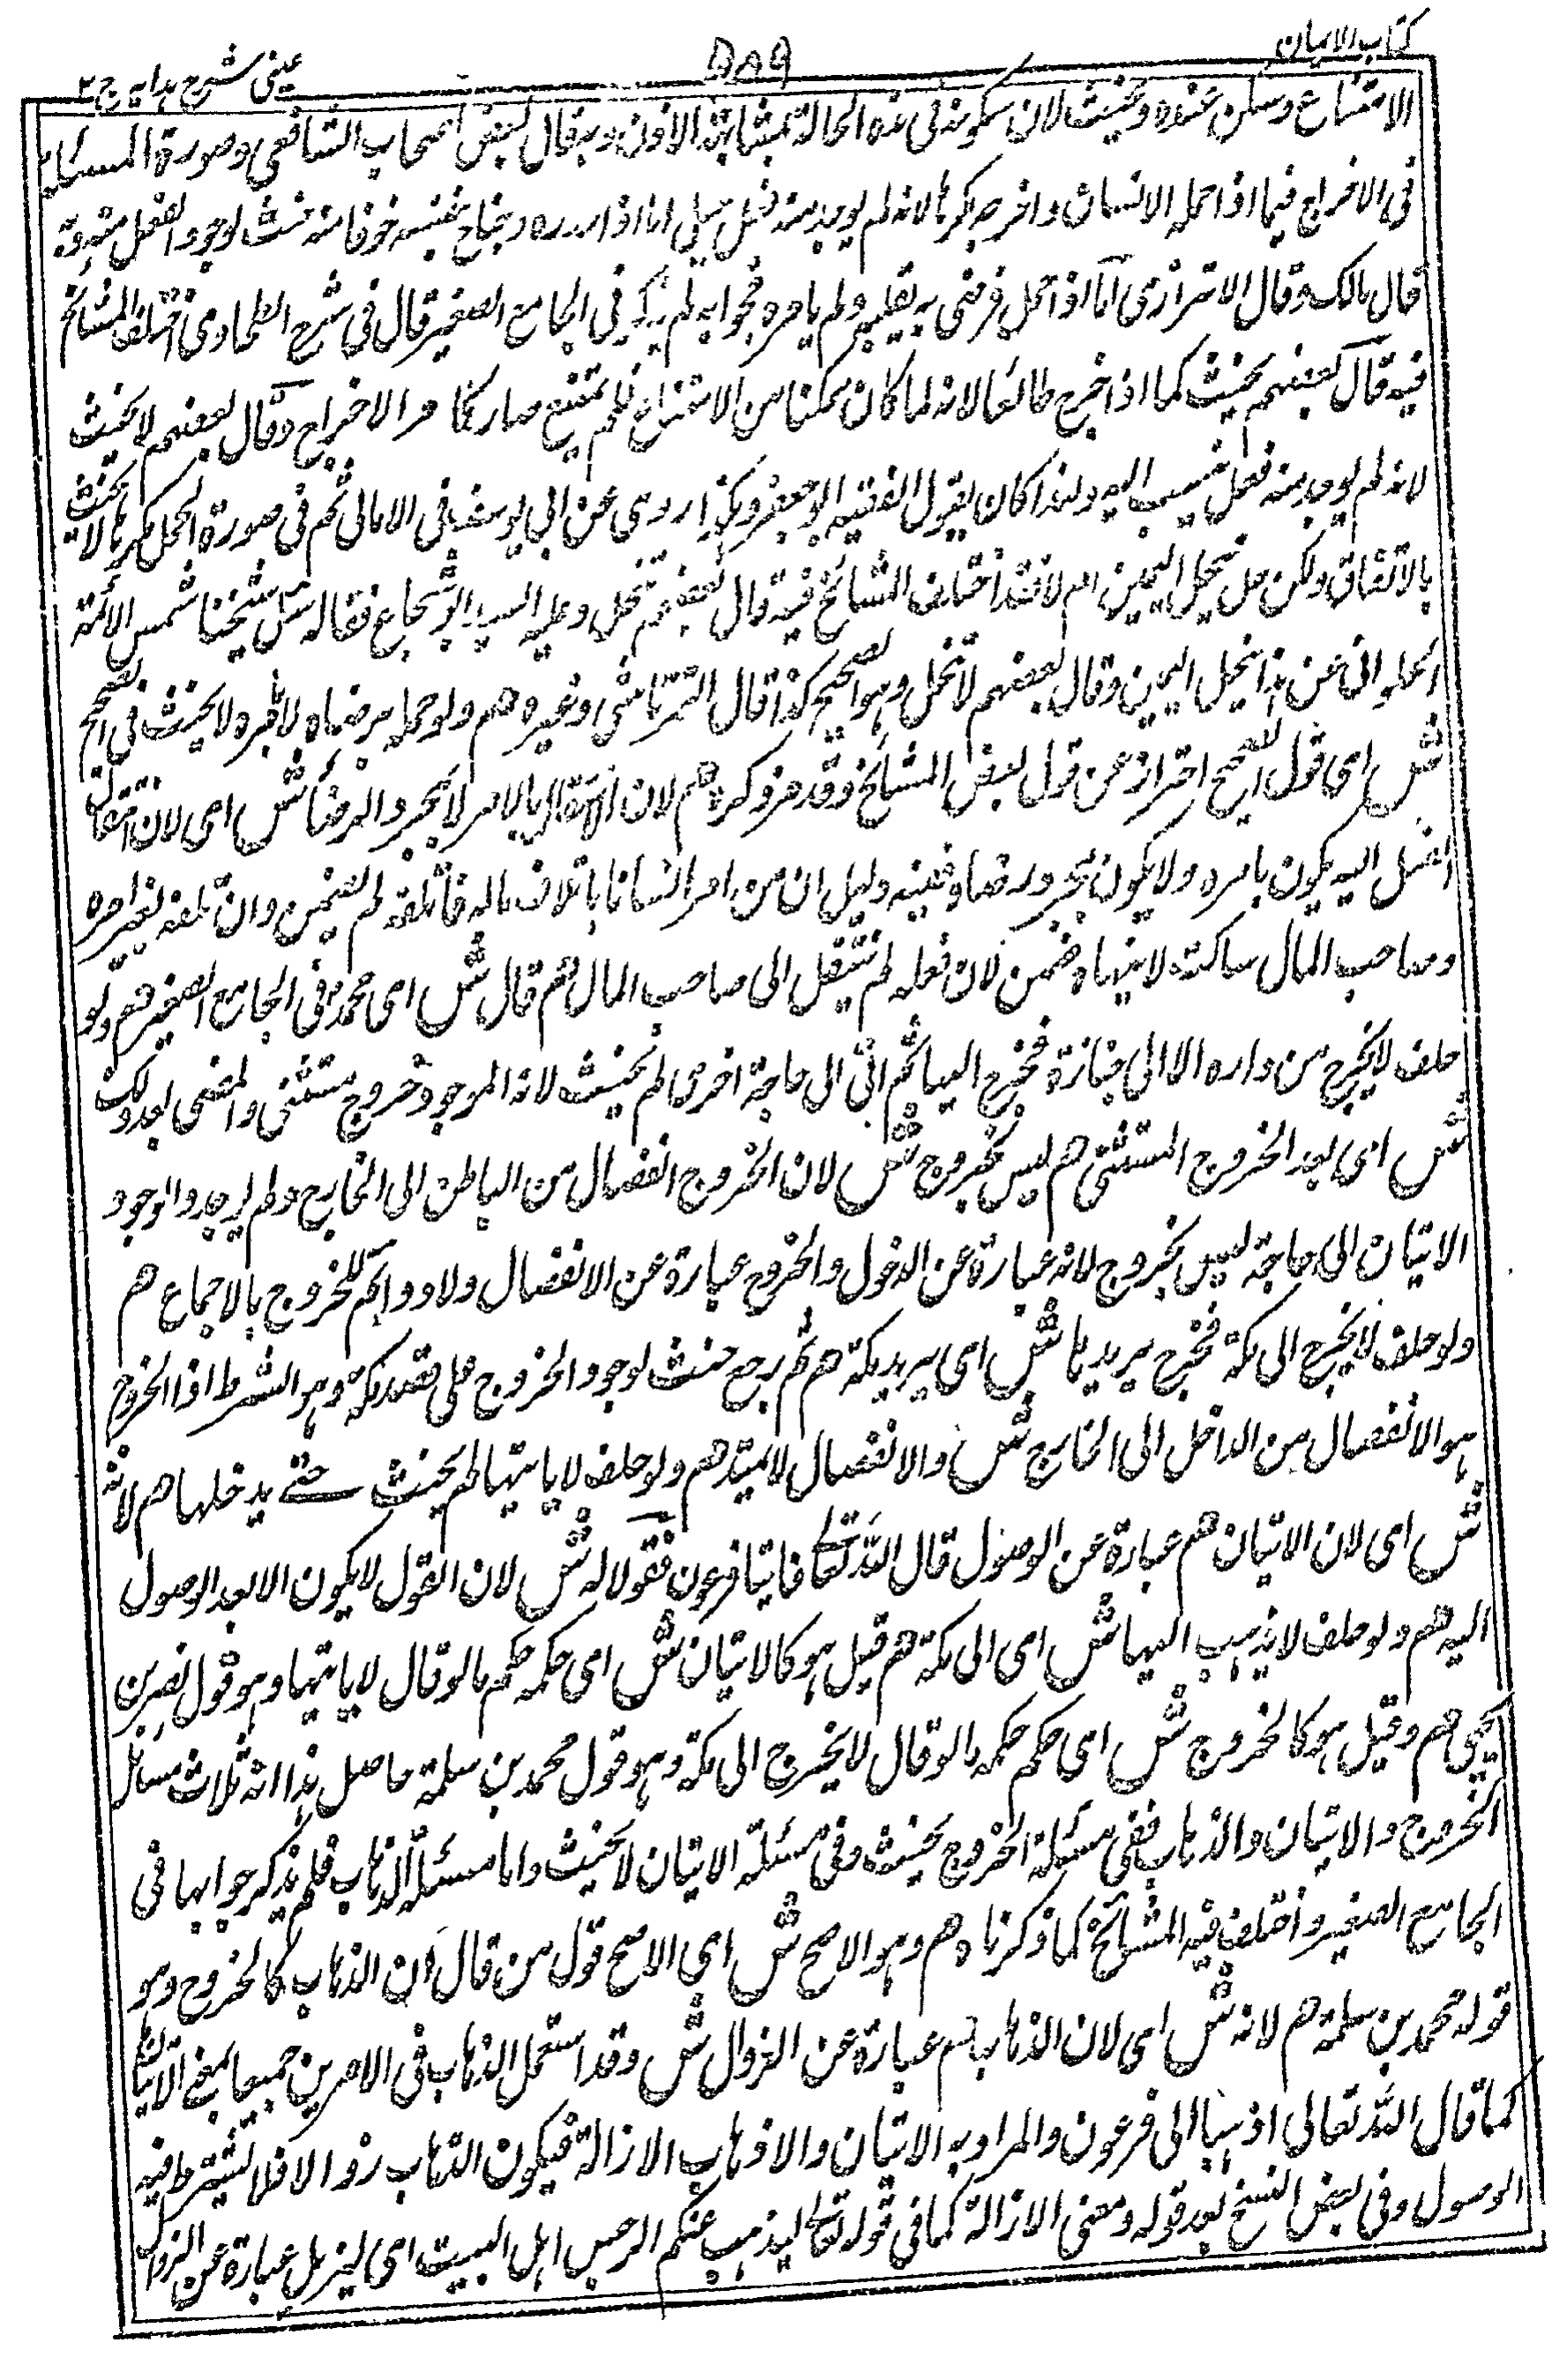 كتاب الايمان
٥٨٩
عينى شرح هدايه ج ٢
الامتناع وسكن عنده ويحنث لان سكوته فى هذه الحالة بمثابة الاذن وبه قال بعض اصحاب الشافعى وصورة المسئلة
فى الاخراج فيما اذا حمله الانسان واخرجه مكرها لانه لم يوجد منه فعل اما اذا هدده فخاف بنفسه خوفا منه حنث لوجود الفعل منه وبه
قال مالك وقال الاترازى اما اذا احمل فرضى به بقلبه ولم يامره فجوابه لم يذكر فى الجامع الصغير قال فى شرح الطحاوى اختلف المشائخ
فيه قال بعضهم يحنث كما اذا خرج طائعا لانه لما كان ممكنا من الامتناع فلم يمتنع صار كالامر الاخراج وقال بعضهم لا يحنث
لانه لم يوجد منه فعل ينسب اليه ولهذا كان يقول الفقيه ابو جعفر وهكذا روى عن ابى يوسف فى الامالى ثم فى صورة الحمل مكرها لا يحنث
بالاتفاق ولكن هل ينحل اليمين ام لا فقد اختلف المشائخ فيه قال بعضهم تنحل وعليه السيد ابو شجاع فقال سئل شيخنا شمس الائمة
الحلوانى عن هذا ينحل اليمين وقال بعضهم لا تنحل وهو الصحيح كذا قال التمرتاشى وغيره هم ولو حمله برضاه لا بامره لا يحنث فى الصحيح
ش اى قول الصحيح احتراز عن قول بعض المشائخ وقد مر ذكره هم لان الانتقال بالامر لا بمجرد الرضا ش اى لان انتقال
الفعل اليه يكون بامره ولا يكون بمجرد رضاه فعينه دليل ان من امر انسانا باتلاف ماله فاتلفه لم يضمن وان تلفه بغير امره
وصاحب المال ساكت لا ينهاه ضمن لان فعله لم ينتقل الى صاحب المال هم قال ش اى محمد فى الجامع الصغير هم ولو
حلف لا يخرج من داره الا الى جنازة فخرج اليها ثم اتى الى حاجة اخرى لم يحنث لانه الموجود خروج مستثنى والمضى بعد ذلك
ش اى بعد الخروج المستثنى هم ليس بخروج ش لان الخروج انفصال من الباطن الى الخارج ولم يوجد والوجود
الاتيان الى حاجة ليس بخروج لانه عبارة عن الدخول والخروج عبارة عن الانفصال ولا دوام للخروج بالاجماع هم
ولو حلف لا يخرج الى مكة فخرج يريدها ش اى يريد مكة هم ثم رجع حنث لوجود الخروج على قصد مكة وهو الشرط اذا الخروج
هو الانفصال من الداخل الى الخارج ش والانفصال لا يمتد هم ولو حلف لا ياتيها لم يحنث حتى يدخلها هم لانه
ش اى لان الاتيان هم عبارة عن الوصول قال الله تعالى فاتيا فرعون فقولا له ش لان القول لا يكون الا بعد الوصول
اليه هم ولو حلف لا يذهب اليها ش اى الى مكة هم قيل هو كالاتيان ش اى حكمه حكم ما لو قال لا ياتيها وهو قول نصر بن
يحيى هم وقيل هو كالخروج ش اى حكم حكمه ما لو قال لا يخرج الى مكة وهو قول محمد بن سلمة حاصل هذا انه ثلاث مسائل
الخروج والاتيان والذهاب ففى مسئلة الخروج يحنث وفى مسئلة الاتيان لا يحنث واما مسئلة الذهاب فلم يذكر جوابها فى
الجامع الصغير واختلف فيه المشائخ كما ذكرناه هم وهو الاصح ش اى الاصح قول من قال ان الذهاب كالخروج وهو
قوله محمد بن سلمة هم لانه ش اى لان الذهاب هم عبارة عن الزوال ش وقد استعمل الذهاب فى الامرين جميعا بمعنى الاتيان
كما قال الله تعالى اذهبا الى فرعون والمراد به الاتيان والاذهاب الازالة فيكون الذهاب زوالا فلا يشترط فيه
الوصول وفى بعض النسخ بعد قوله ومعنى الازالة كما فى قوله تعالى ليذهب عنكم الرجس اهل البيت اى ليزيل عبارة عن الزوال